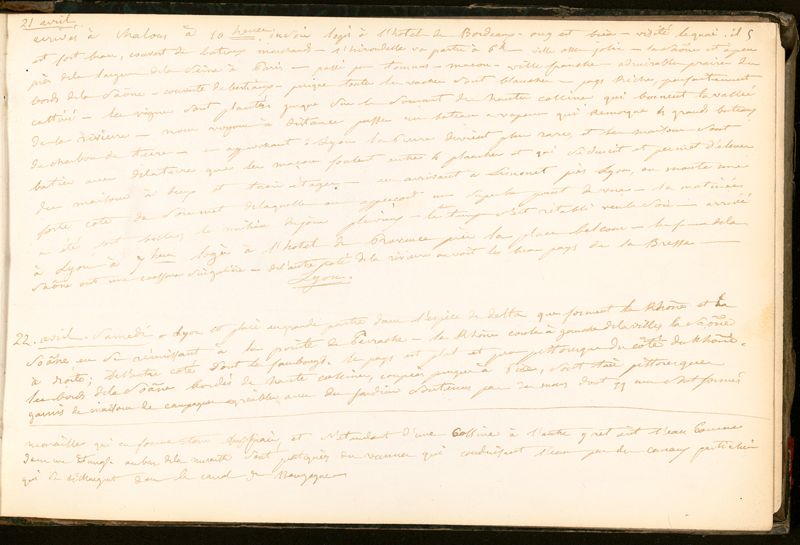 21 avril
arrivés à Chalons à 10 heures du soir logé à l'hotel de Bordeaux - visité le quai. il 5
est fort beau, couvert de bateaux marchand - l'hirondelle va partir à 6h - ville assez jolie - la Saône est à peu
près de la largeur de la Seine à Paris - passé par tournus - macon - ville franche admirable prairie des
bords de la Saône - couverte de bestiaux - presque toutes les vaches sont blanches - pays très perfaitement
cultivé - les vignes sont plantées jusque sur le sommet des hautes collines qui bornent la vallée
de la rivière - nous voyons à distance passer un bateau a vapeur qui remorque 4 grands bateaux
de charbon de terre - en approchant à Lyon la pierre devient plus rare, et les maisons sont
baties avec de la terre que les maçons foulent entre 4 planches et qui durcit et permet d'elever
des maisons à deux et trois étages - en arrivant à Limonet près Lyon, on monte une
forte côte du sommet de laquelle on apperçoit un superbe point de vue - la matinée
a été le milieu du jour pluvieux - le temps s'est rétabli vers le soir - arrivé
à Lyon à 7 heures logé à l'hotel de Provence près la place belcour - les femmes de la
Saône ont une coeffure singulière - de l'autre coté de la rivière on voit les beau pays de la Bresse
Lyon.
22. avril. Samedi - Lyon est placé en grande partie dans l'espèce de delta que forment le Rhône et la
Saône en se réunissant à la pointe de Perrache - le Rhône coule à gauche de la villes la Saône
à droite; de l'autre coté sont les faubourgs. le pays est plat et peu pittoresque du côté du Rhône.
les bords de la Saône bordés de haute collines, coupées jusqu'à pic, sont très pittoresques
garnis de maisons de campagne agréables avec des jardins soutenus par des murs dont qq uns sont formés
murailles qui et s'étendant d'une Colline à l'autre y retient l'eau Comme
dans un étang. au bas de la muraille sont pratiqués des vannes qui conduisent l'eau par des canaux particulier
qui se déchargent dans le canal de Bourgogne